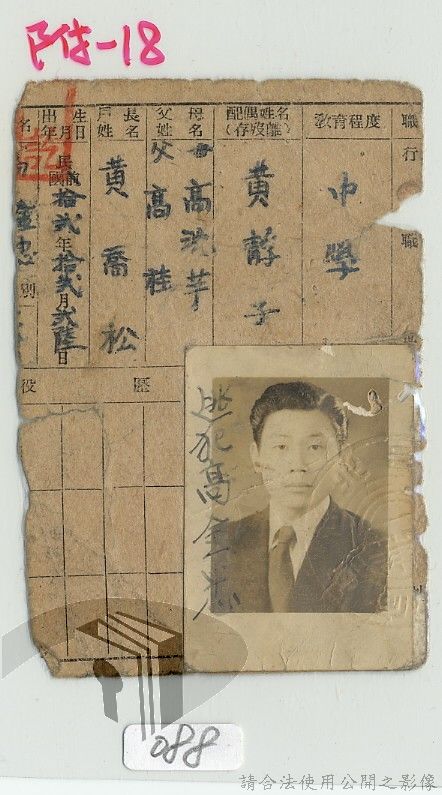 附-18
職行 職
教育程度
中學
配偶姓名(存歿離)
黃靜子
母名
母高沈芋
父姓
父高桂
戶長姓名
黃喬松
出生年月日
民國前拾貳年拾貳月貳陸日
名
金忠
別
役歷
逃犯高金忠
088
請合法使用公開之影像